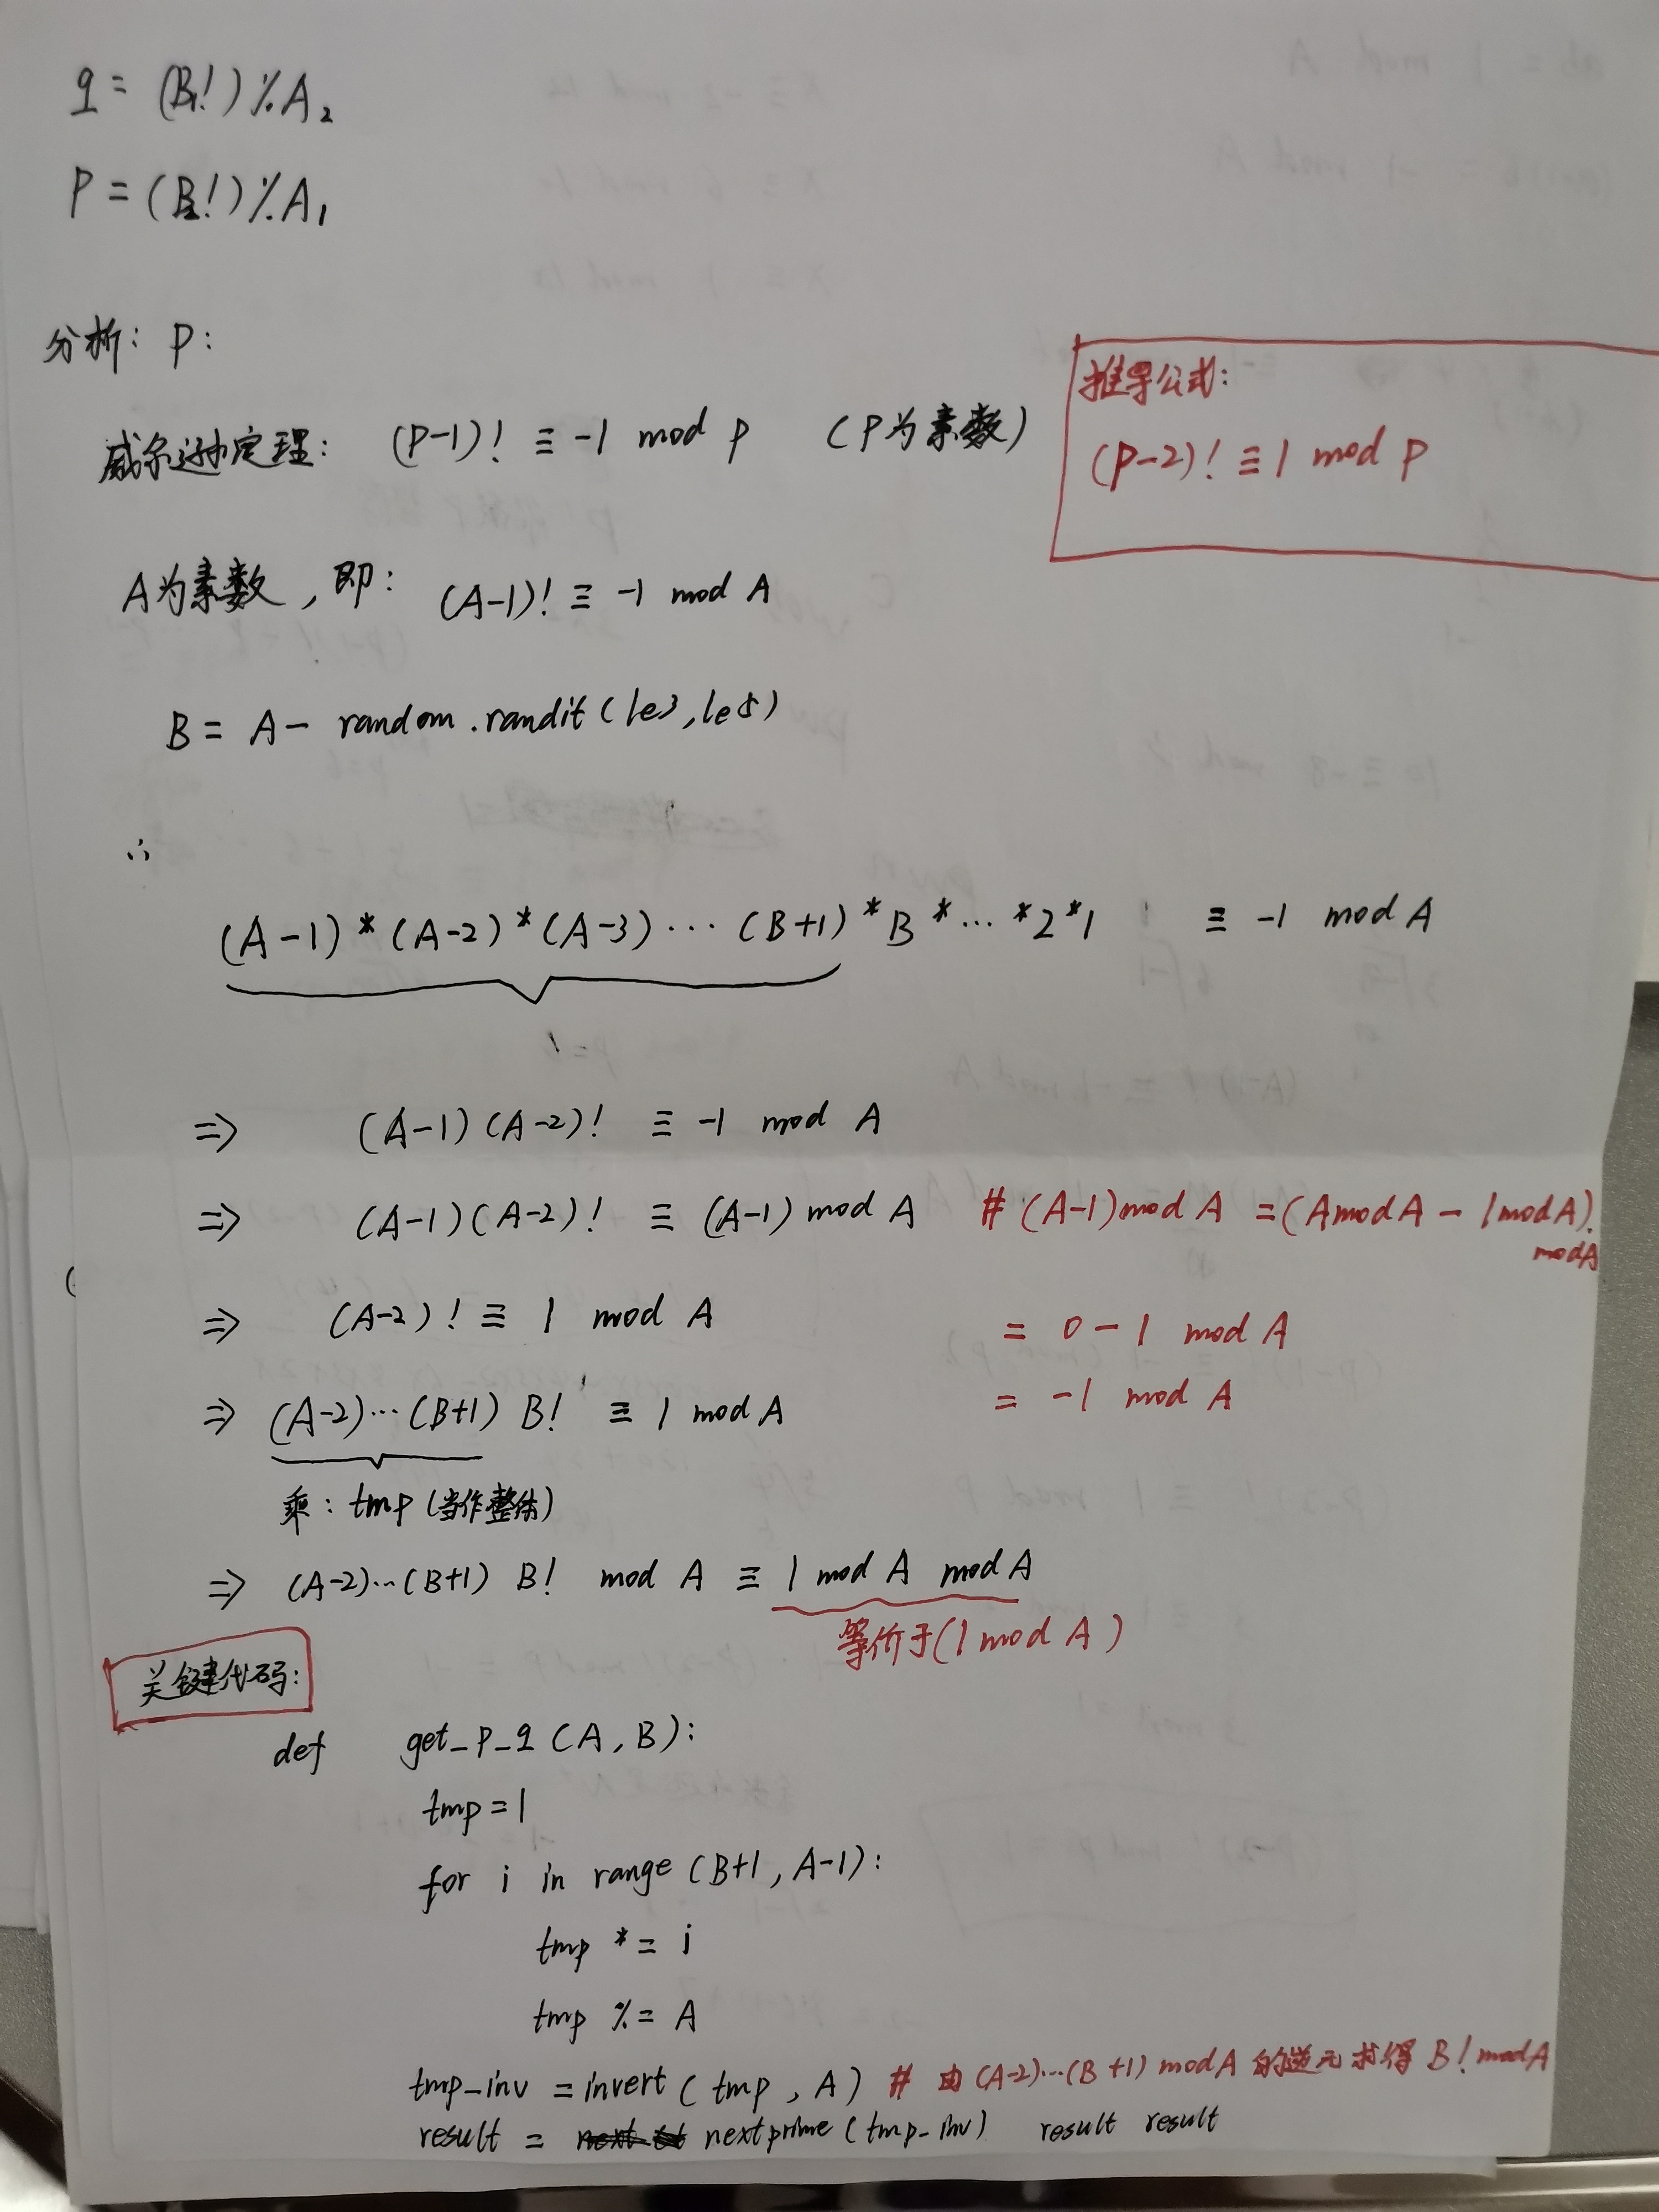 q = (B₁!) % A₂
P = (B₂!) % A₁
分析: P:
威尔逊定理: (P-1)! ≡ -1 mod P (P为素数)
推导公式:
(P-2)! ≡ 1 mod P
A为素数, 即: (A-1)! ≡ -1 mod A
B = A - random.randit(1e3,1e5)
∴
(A-1)*(A-2)*(A-3)...(B+1)*B*...*2*1 ≡ -1 mod A
⇒ (A-1)(A-2)! ≡ -1 mod A
⇒ (A-1)(A-2)! ≡ (A-1) mod A # (A-1) mod A = (A mod A - 1 mod A)
mod A
⇒ (A-2)! ≡ 1 mod A = 0-1 mod A
= -1 mod A
⇒ (A-2)...(B+1) B! ≡ 1 mod A
乘: tmp (当作整体)
⇒ (A-2)...(B+1) B! mod A ≡ 1 mod A mod A
等价于(1 mod A)
关键代码:
def get_p_q (A, B):
tmp = 1
for i in range (B+1, A-1):
tmp *= i
tmp %= A
tmp_inv = invert (tmp, A) # 由(A-2)...(B+1) mod A 的逆元求得 B! mod A
result = nextprime (tmp_inv) result result